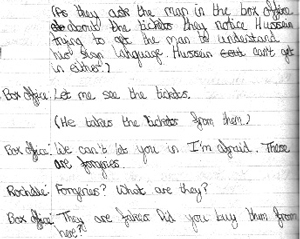 (As they ask the man in the box office
about the tickets they notice Hussein
trying to get the man to understand
his sign language Hussein can't get
in either.)
Box office: Let me see the tickets.
(He takes the tickets from them.)
Box office: We can't let you in I'm afraid. These
are forgeries.
Rochdale: Forgeries? What are they?
Box office: They are fakes Did you buy them from
here?